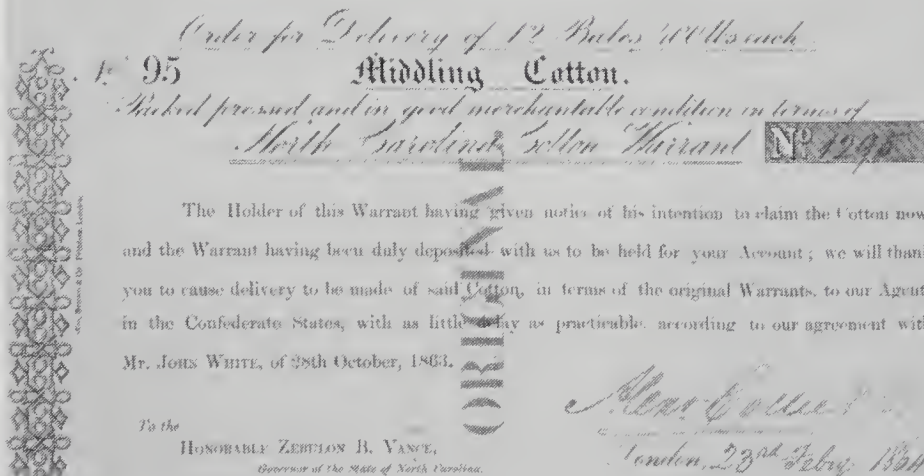 Order for Delivery of 12 Bales 400 lbs each
95 Middling Cotton.
Packed pressed and in good merchantable condition in terms of
North Carolina Cotton Warrant No 1295
The Holder of this Warrant having given notice of his intention to claim the Cotton now
and the Warrant having been duly deposited with us to be held for your Account; we will thank
you to cause delivery to be made of said Cotton, in terms of the original Warrants, to our Agent
in the Confederate States, with as little delay as practicable, according to our agreement with
Mr. John White, of 28th October, 1863.
ORIGINAL
Alexr Collie
London, 23rd Febry.
To the
Honorable Zebulon B. Vance,
Governor of the State of North Carolina.